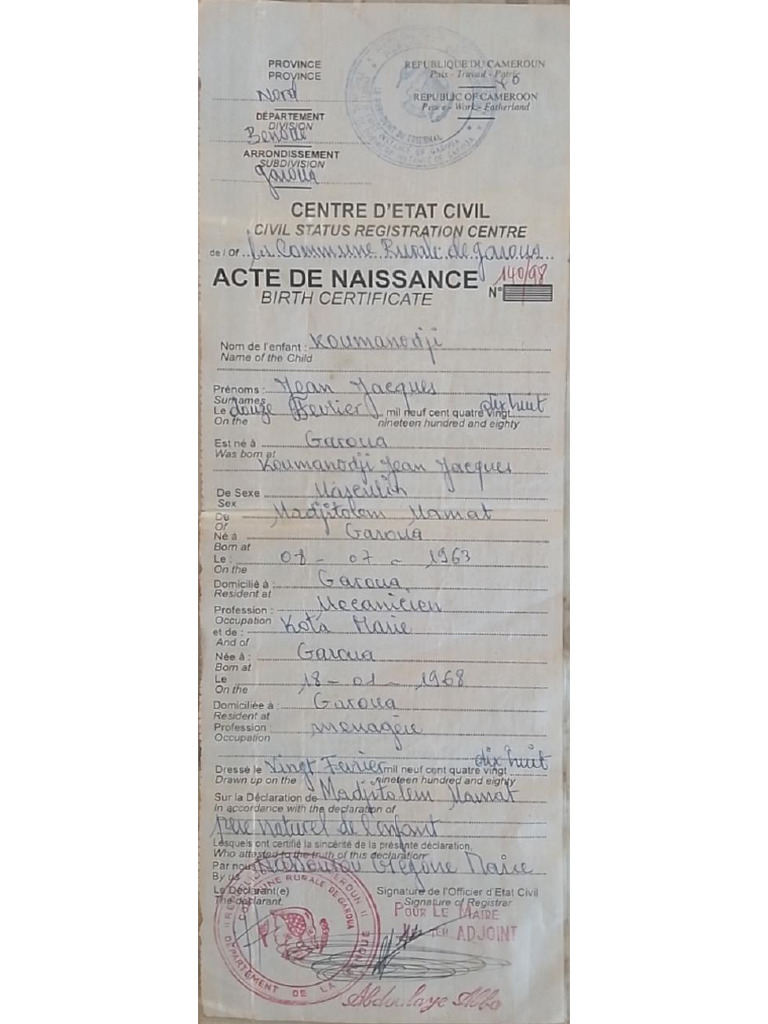 PROVINCE
PROVINCE
Nord
DÉPARTEMENT
DIVISION
Benoué
ARRONDISSEMENT
SUBDIVISION
Garoua
REPUBLIQUE DU CAMEROUN
Paix - Travail - Patrie
REPUBLIC OF CAMEROON
Peace - Work - Fatherland
CENTRE D'ETAT CIVIL
CIVIL STATUS REGISTRATION CENTRE
de / Of la Commune Rurale de Garoua
ACTE DE NAISSANCE
BIRTH CERTIFICATE
N° 140/98
Nom de l'enfant : Koumanodji
Name of the Child
Prénoms : Jean Jacques
Surnames
Le douze Fevrier mil neuf cent quatre vingt dix huit
On the nineteen hundred and eighty
Est né à Garoua
Was born at
Koumanodji Jean Jacques
De Sexe Masculin
Sex
De Madjitolem Mamat
Of
Né à Garoua
Born at
Le : 08 - 07 - 1963
On the
Domicilié à : Garoua
Resident at
Profession : Mecanicien
Occupation
et de : Kota Marie
And of
Née à : Garoua
Born at
Le 18 - 01 - 1968
On the
Domiciliée à : Garoua
Resident at
Profession menagère
Occupation
Dressé le Vingt Fevrier mil neuf cent quatre vingt dix huit
Drawn up on the nineteen hundred and eighty
Sur la Déclaration de Madjitolem Mamat
In accordance with the declaration of
père naturel de l'enfant
Lesquels ont certifié la sincérité de la présente déclaration,
Who attested to the truth of this declaration
Par nous Maire
By us
Le Déclarant(e)
The declarant.
Signature de l'Officier d'Etat Civil
Signature of Registrar
POUR LE MAIRE
1ER ADJOINT
COMMUNE RURALE DE GAROUA
DÉPARTEMENT DE LA BENOUE
Abdoulaye Abba